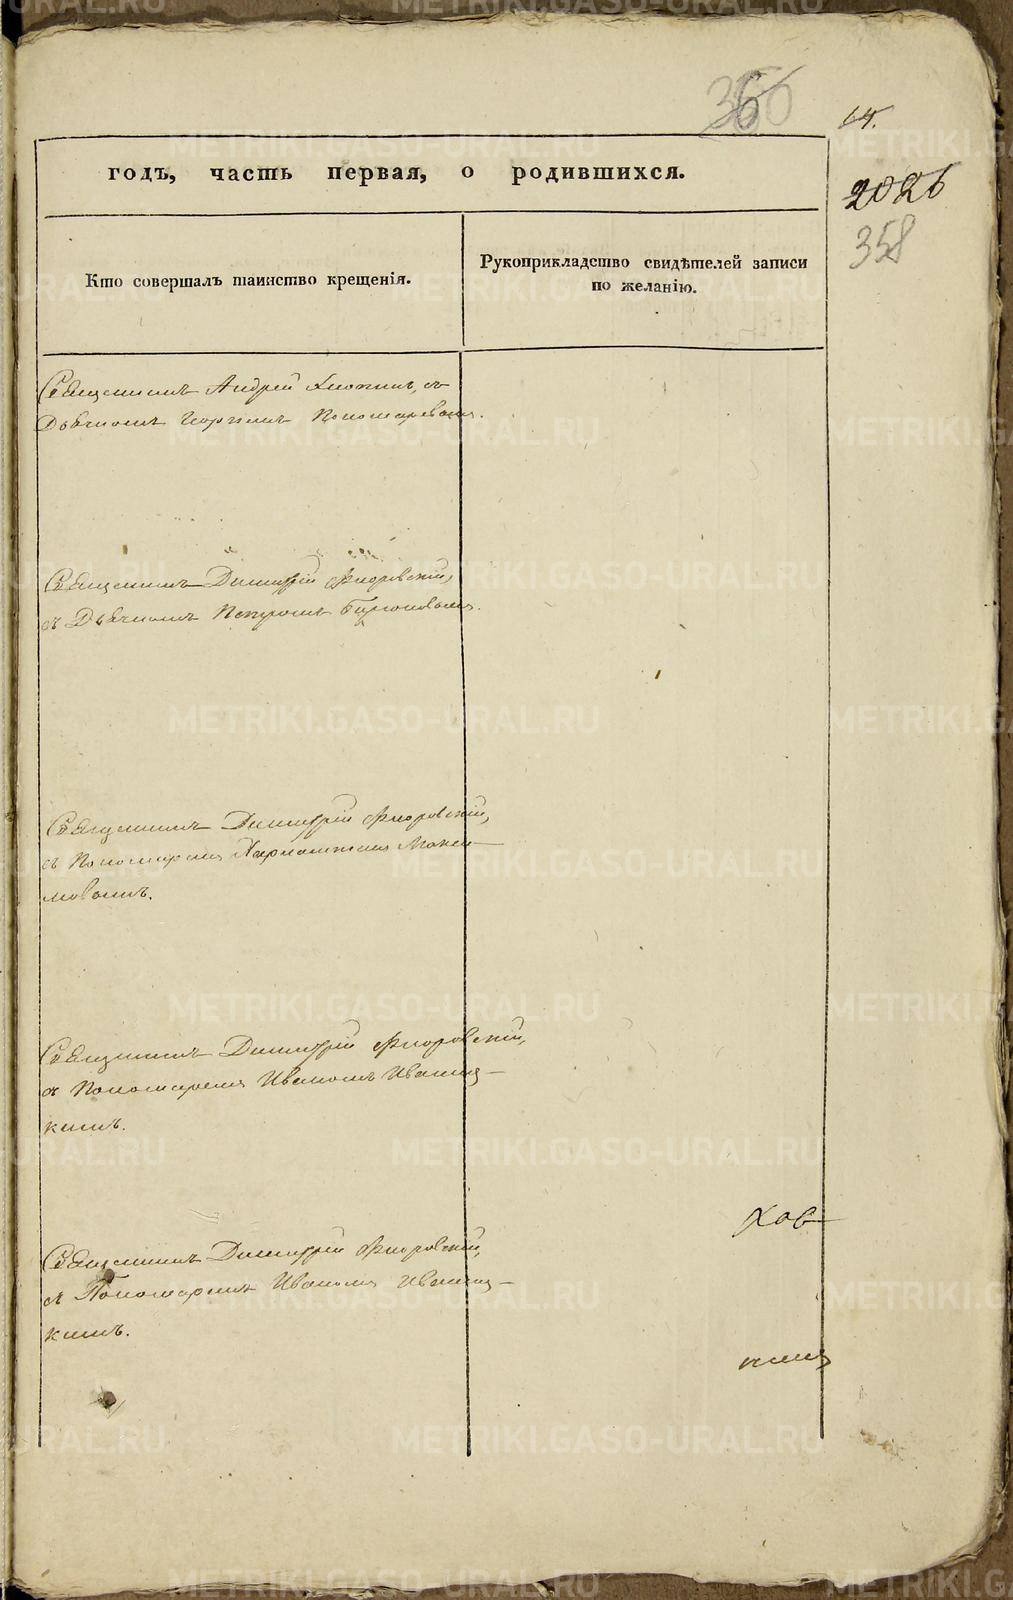 360
14.
годъ, часть первая, о родившихся.
2026
358
Кто совершалъ таинство крещенія.
Рукоприкладство свидѣтелей записи
по желанію.
Священникъ Андрей съ
Дьячкомъ Георгіемъ Пономаревымъ.
Священникъ Димитрій Флоровскій,
съ Дьячкомъ Петромъ
Священникъ Димитрій Флоровскій,
съ Пономаремъ Харлампіемъ Макси-
мовымъ.
Священникъ Димитрій Флоровскій,
съ Пономаремъ Иваномъ Иваниц-
кимъ.
Хов
Священникъ Димитрій Флоровскій,
съ Пономаремъ Иваномъ Иваниц-
кимъ.
METRIKI.GASO-URAL.RU